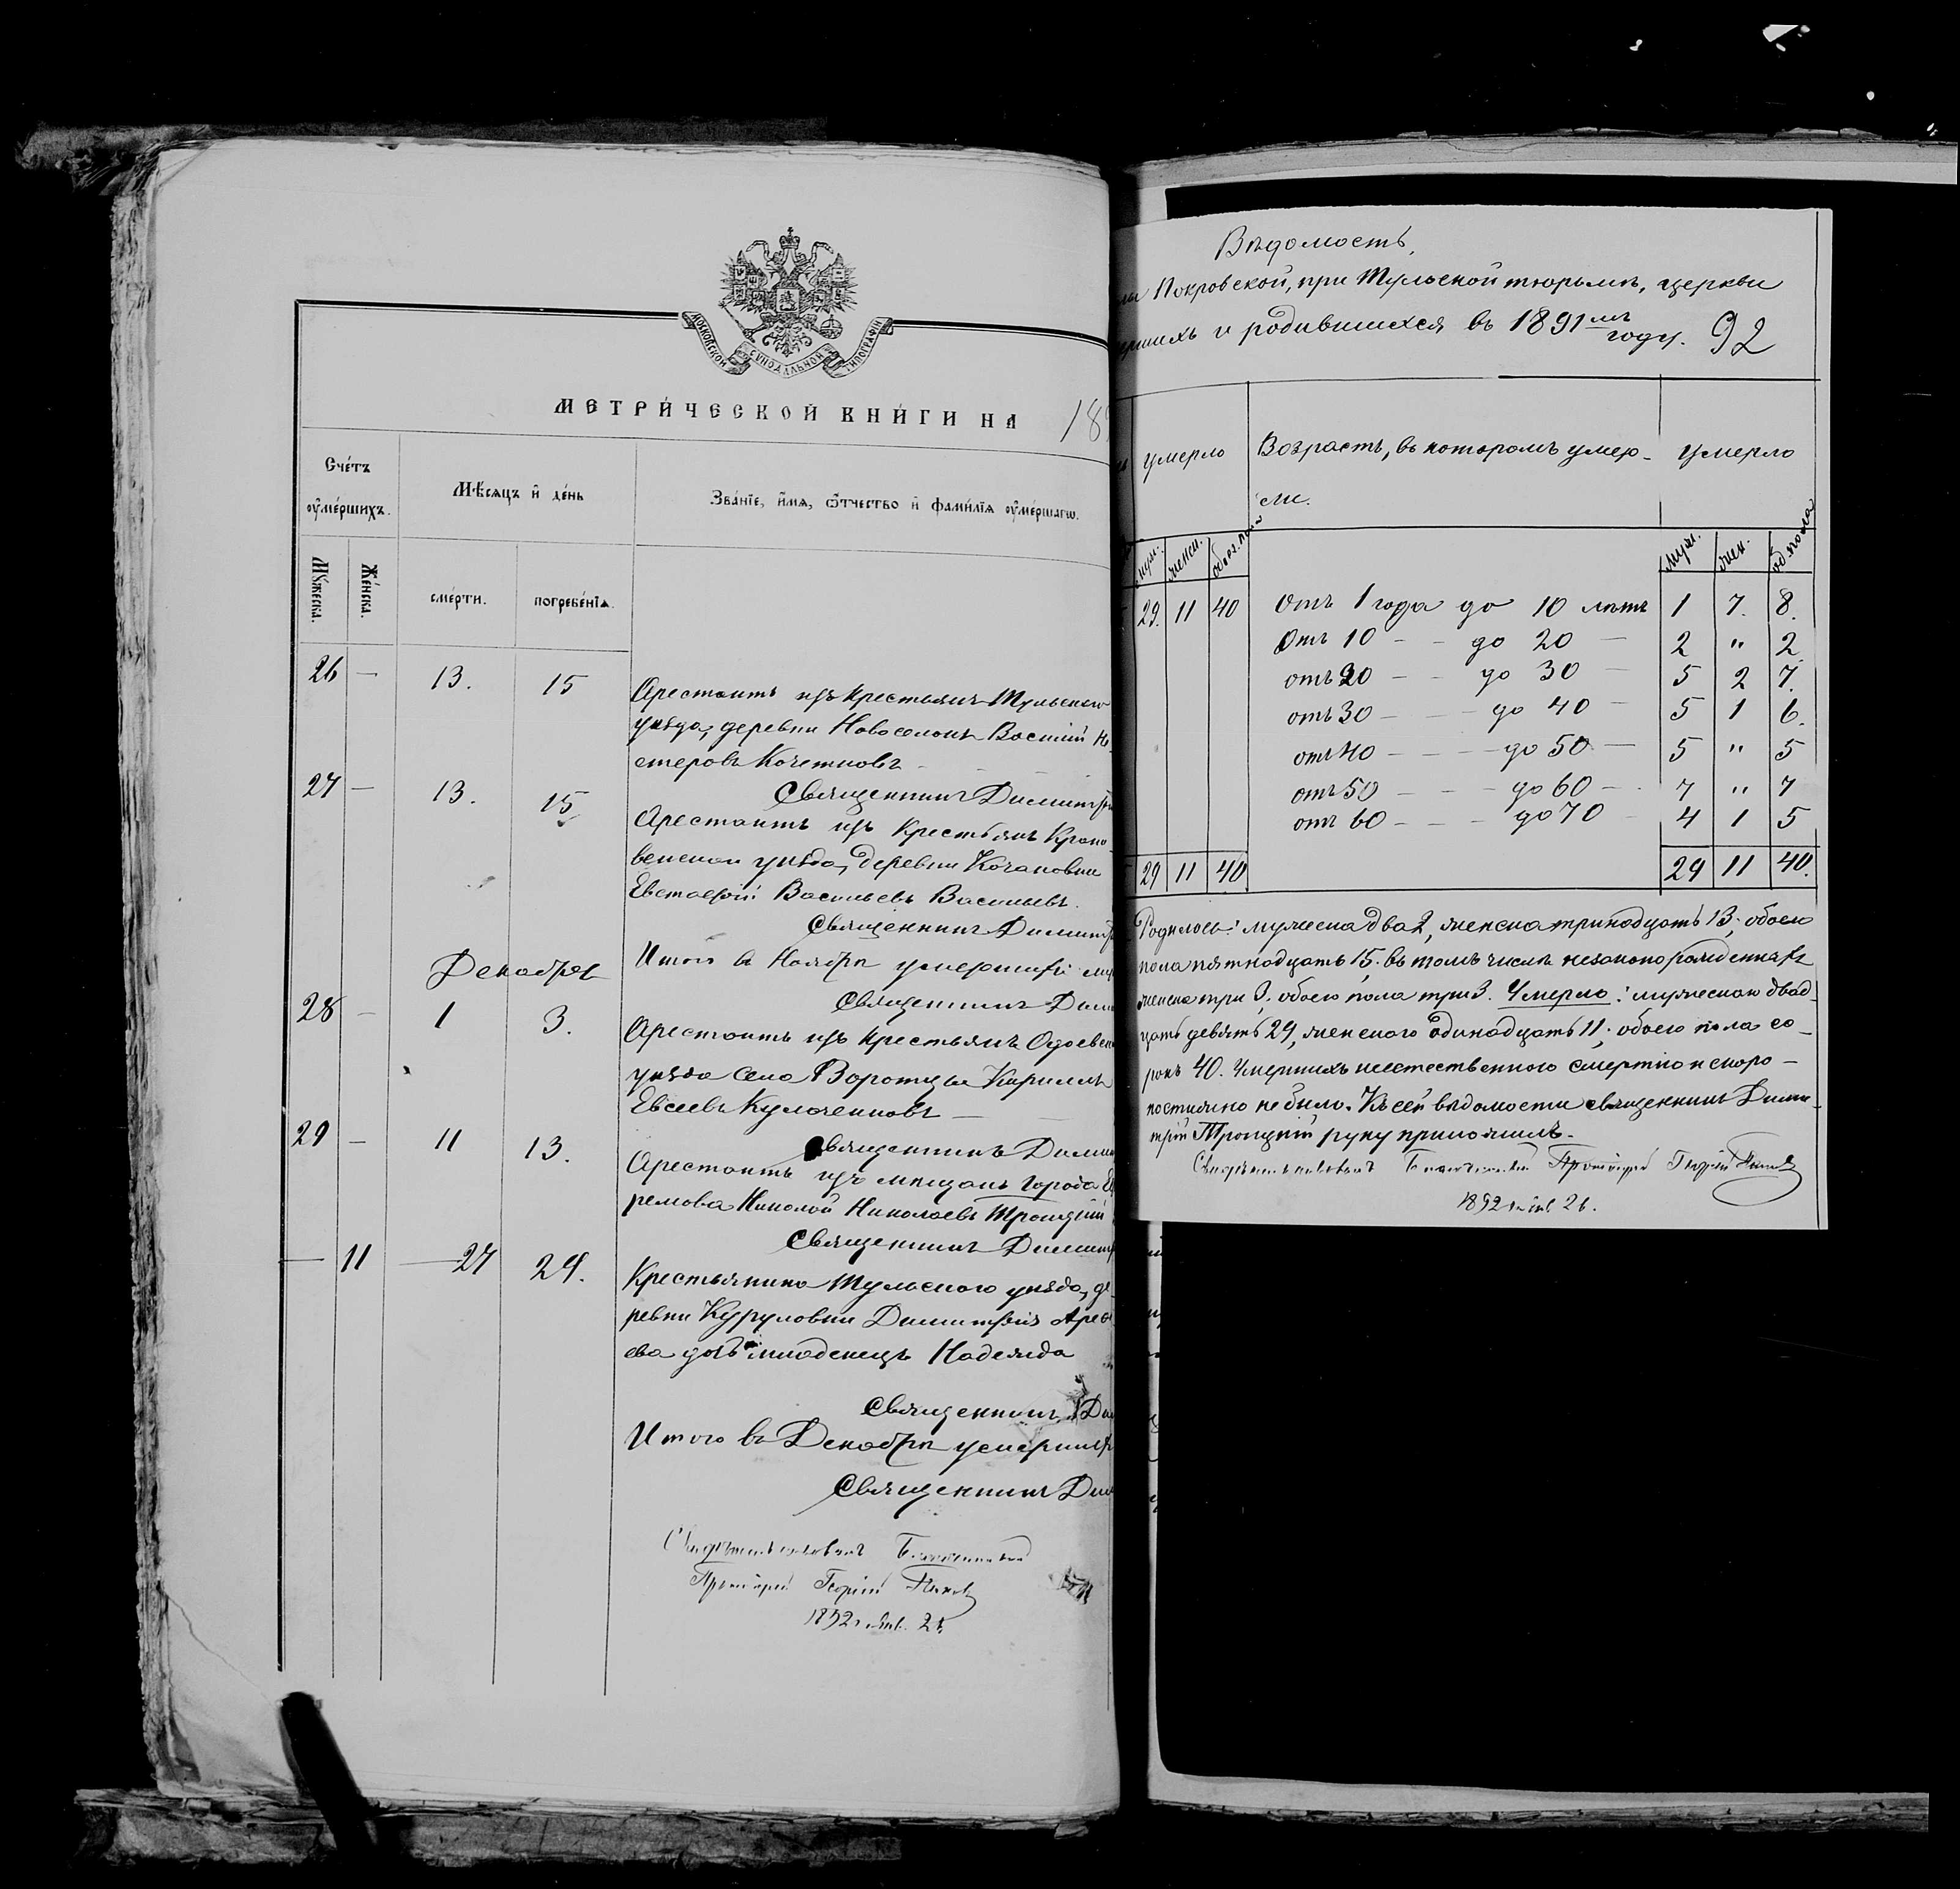 МОСКОВСКОЙ СѴНОДАЛЬНОЙ ТИПОГРАФІИ
МЕТРИ́ЧЕСКОЙ КНИ́ГИ НА 18
Сче́тъ ᲂу҆ме́ршихъ.
Мѣ́сяцъ и҆ де́нь
Зва́нїе, и҆́мѧ, ѻ҆́тчество и҆ фами́лїѧ ᲂу҆ме́ршагѡ.
Мꙋ́жеска.
Же́нска.
сме́рти.
погребе́нїѧ.
26 — 13. 15 Арестантъ изъ крестьянъ Тульскаго
уѣзда, деревни Новоселокъ Василій Не-
стеровъ Кочетковъ
Священникъ Димитр
27 — 13. 15 Арестантъ изъ крестьянъ Крапи-
венскаго уѣзда, деревни Кочановки
Евстафій Васильевъ Васильевъ.
Священникъ Димитр
Итого въ Ноябрѣ умершихъ му
Декабрь
Священникъ Дим
28 — 1 3. Арестантъ изъ крестьянъ Одоевск
уѣзда села Воротцы Кириллъ
Евсеевъ Кулаченковъ —
Священникъ Дими
29 — 11 13. Арестантъ изъ мѣщанъ города Еф
ремова Николай Николаевъ Троицкій
Священникъ Димит
— 11 — 27 29. Крестьянина Тульскаго уѣзда, де-
ревни Куруловки Димитрія Ареф
ева дочь младенецъ Надежда
Священникъ Дим
Итого въ Декабрѣ умершихъ
Священникъ Дим
Свидѣтельствовалъ Благочинный
Протоіерей Георгій Пановъ
1892 г. янв. 26.
Вѣдомость,
лы Покровской, при Тульской тюрьмѣ, церкви
ершихъ и родившихся въ 1891мъ году. 92
умерло
Возрастъ, въ которомъ умер-
ли.
умерло
муж. женск. обоег. пола
муж. жен. об. пола
29. 11 40 Отъ 1 года до 10 лѣтъ 1 7. 8.
Отъ 10 — — до 20 — 2 " 2
отъ 20 — — до 30 — 5 2 7.
отъ 30 — — до 40 — 5 1 6.
отъ 40 — — — до 50 — 5 " 5
отъ 50 — — — до 60 — 7 " 7
отъ 60 — — — до 70 — 4 1 5
29 11 40 29 11 40.
Родилось: мужеска два 2, женска тринадцать 13; обоего
пола пятнадцать 15. въ томъ числѣ незаконорожденныхъ
женска три 3. обоего пола три 3. Умерло: мужескаго двад-
цать девять 29, женскаго одинадцать 11; обоего пола со-
рокъ 40. Умершихъ неестественною смертію и скоро-
постижно не было. Къ сей вѣдомости священникъ Дими-
трій Троицкій руку приложилъ.
Свидѣтельствовалъ Благочинный Протоіерей Георгій Пановъ
1892 г. янв. 26.